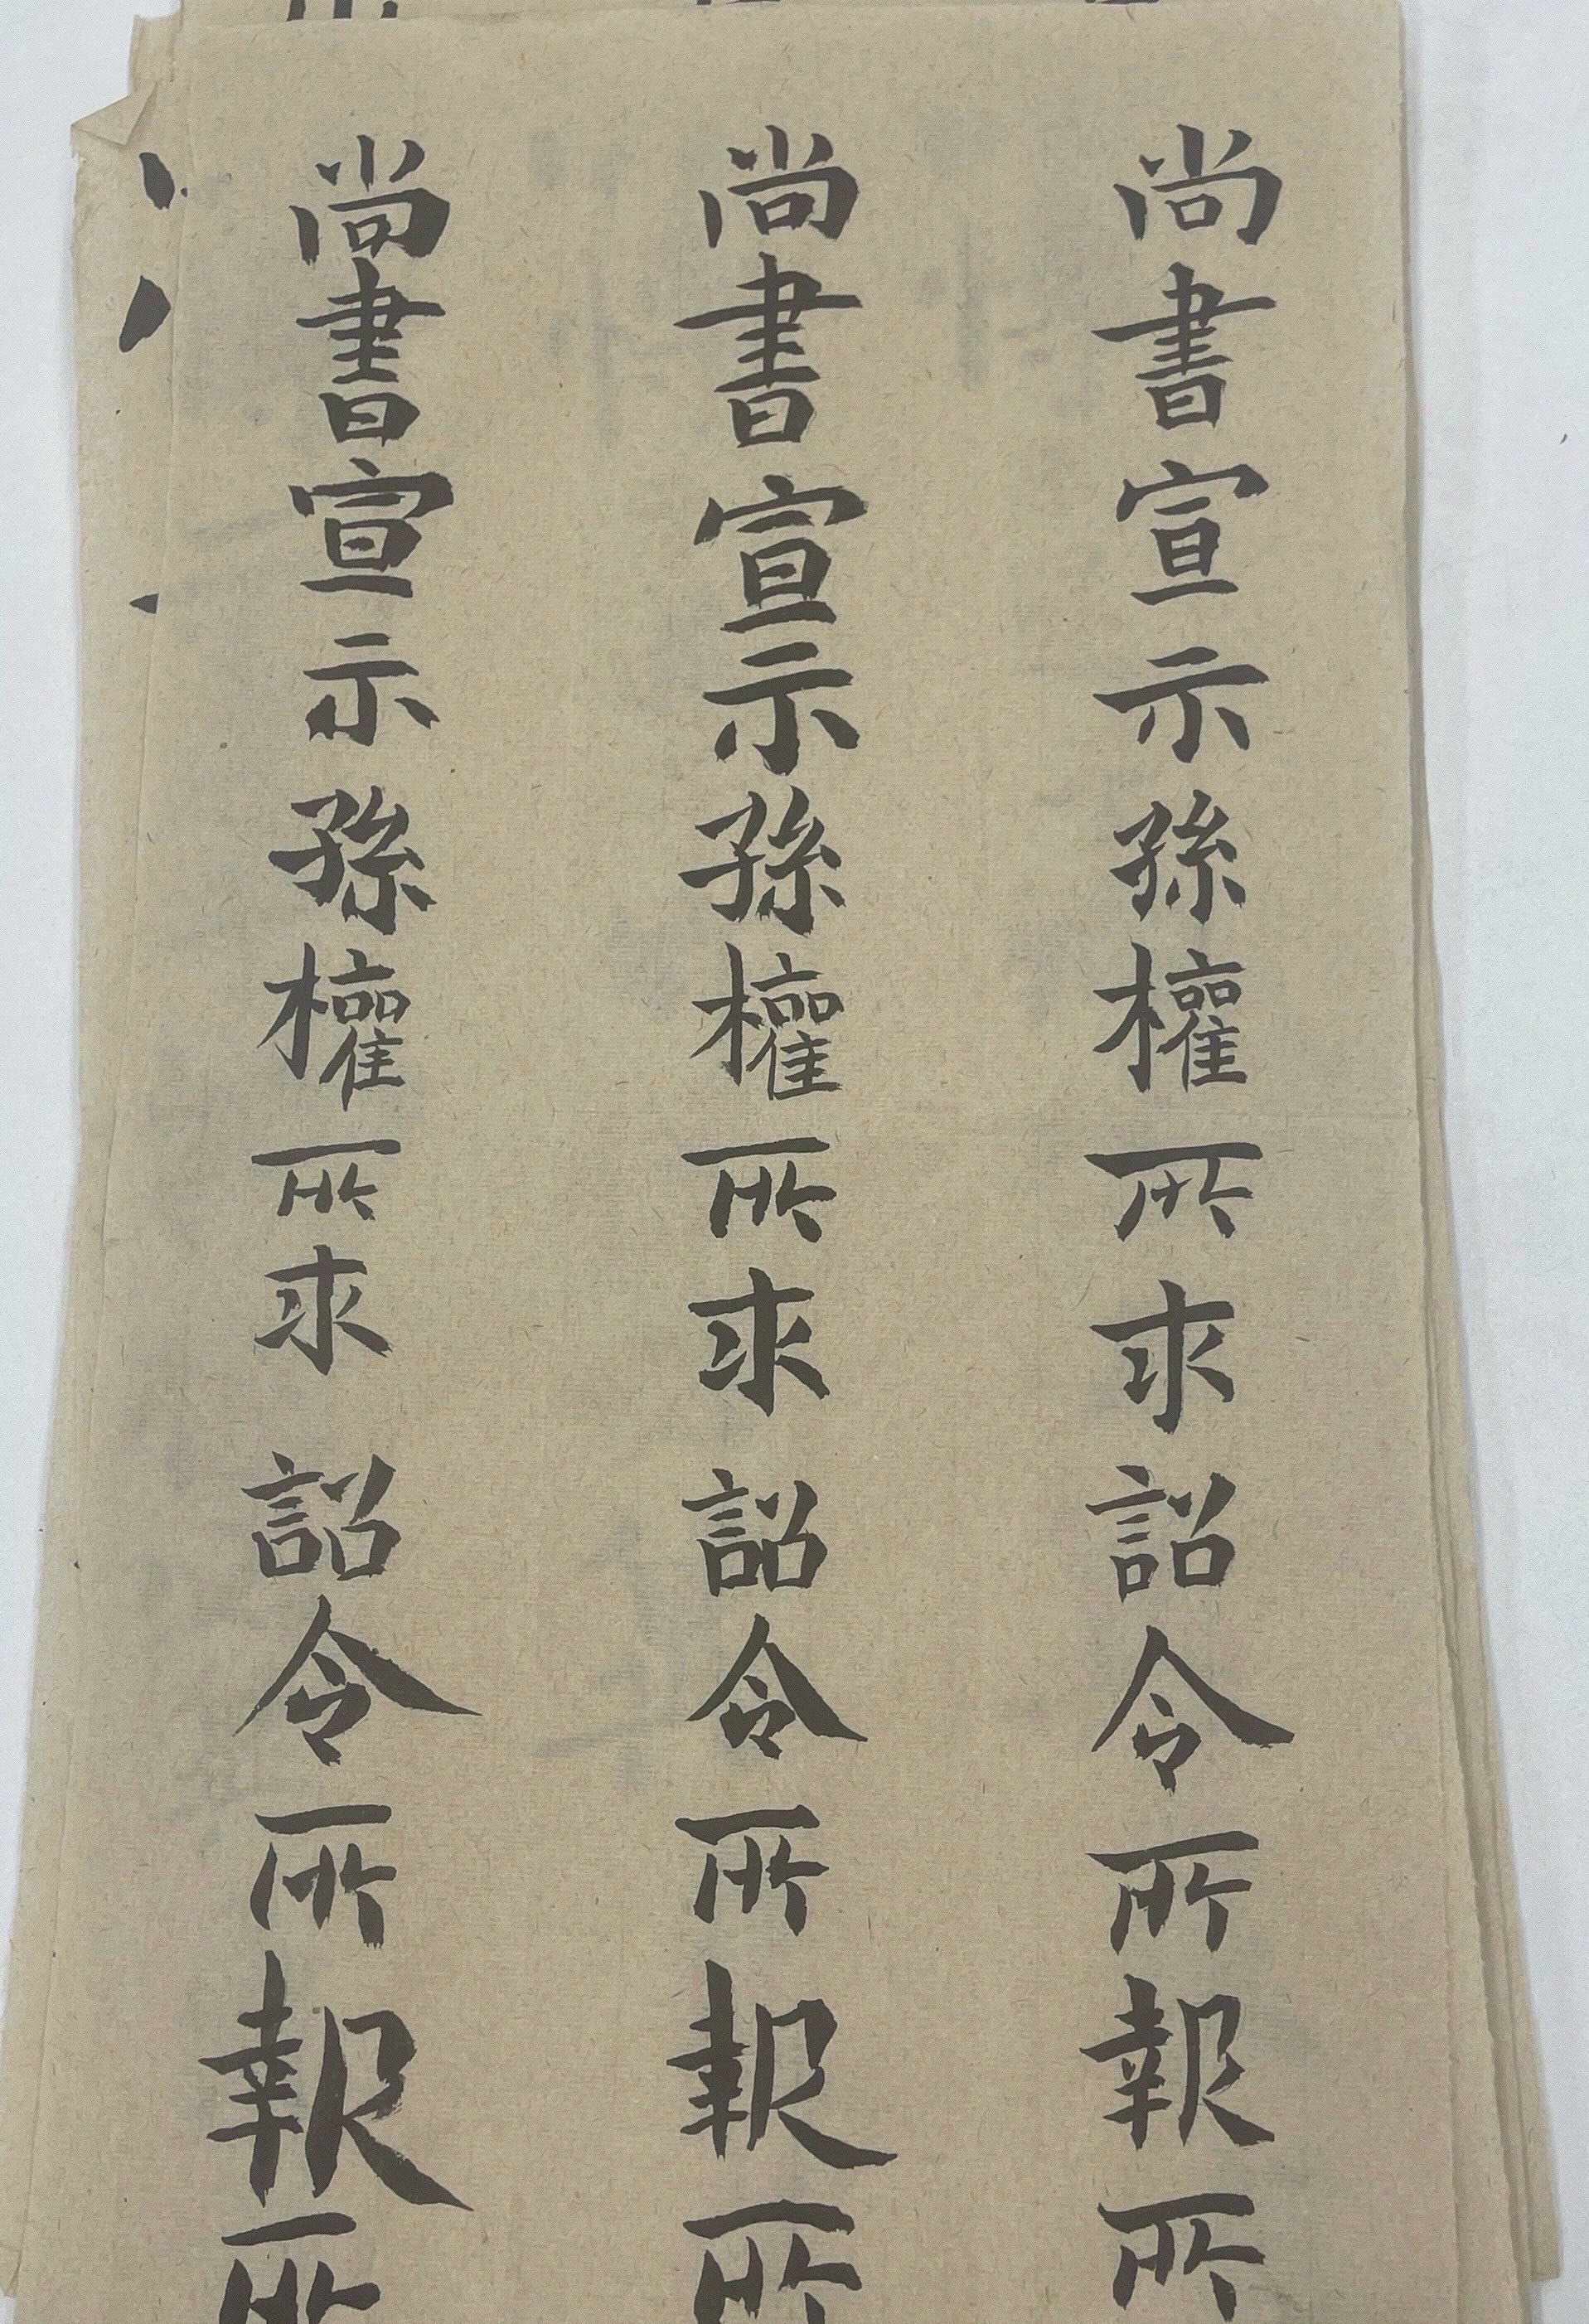 尚書宣示孫權所求詔令所報所
尚書宣示孫權所求詔令所報所
尚書宣示孫權所求詔令所報所